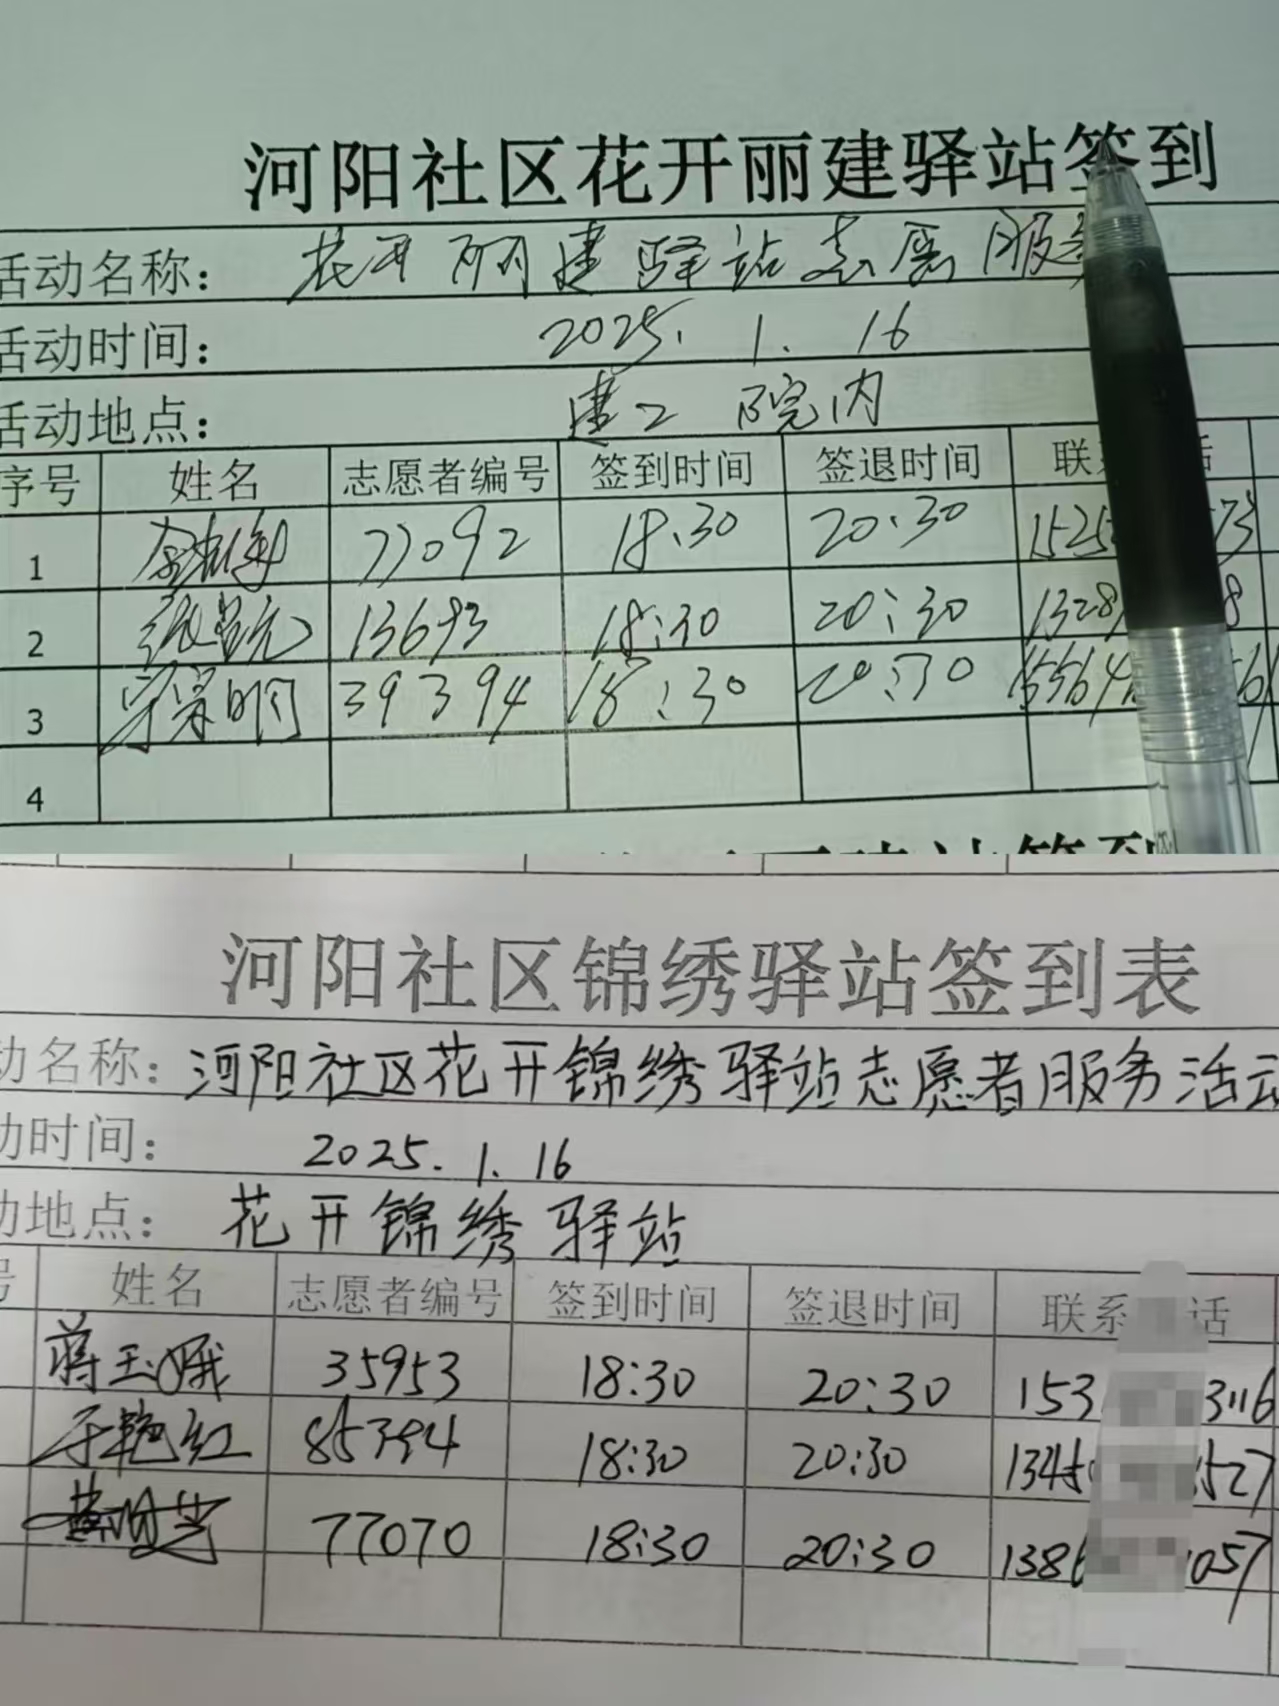 河阳社区花开丽建驿站签到
活动名称： 花开丽建驿站志愿服务
活动时间： 2025.1.16
活动地点： 建工院内
序号 姓名 志愿者编号 签到时间 签退时间 联系 话
1 77092 18:30 20:30 1525 73
2 13693 18:30 20:30 1328 8
3 39394 18:30 20:30 15564 56
4
河阳社区锦绣驿站签到表
动名称： 河阳社区花开锦绣驿站志愿者服务活动
动时间： 2025.1.16
动地点： 花开锦绣驿站
号 姓名 志愿者编号 签到时间 签退时间 联系 话
蒋玉娥 35953 18:30 20:30 153 3116
于艳红 85394 18:30 20:30 1345 527
77070 18:30 20:30 138 057